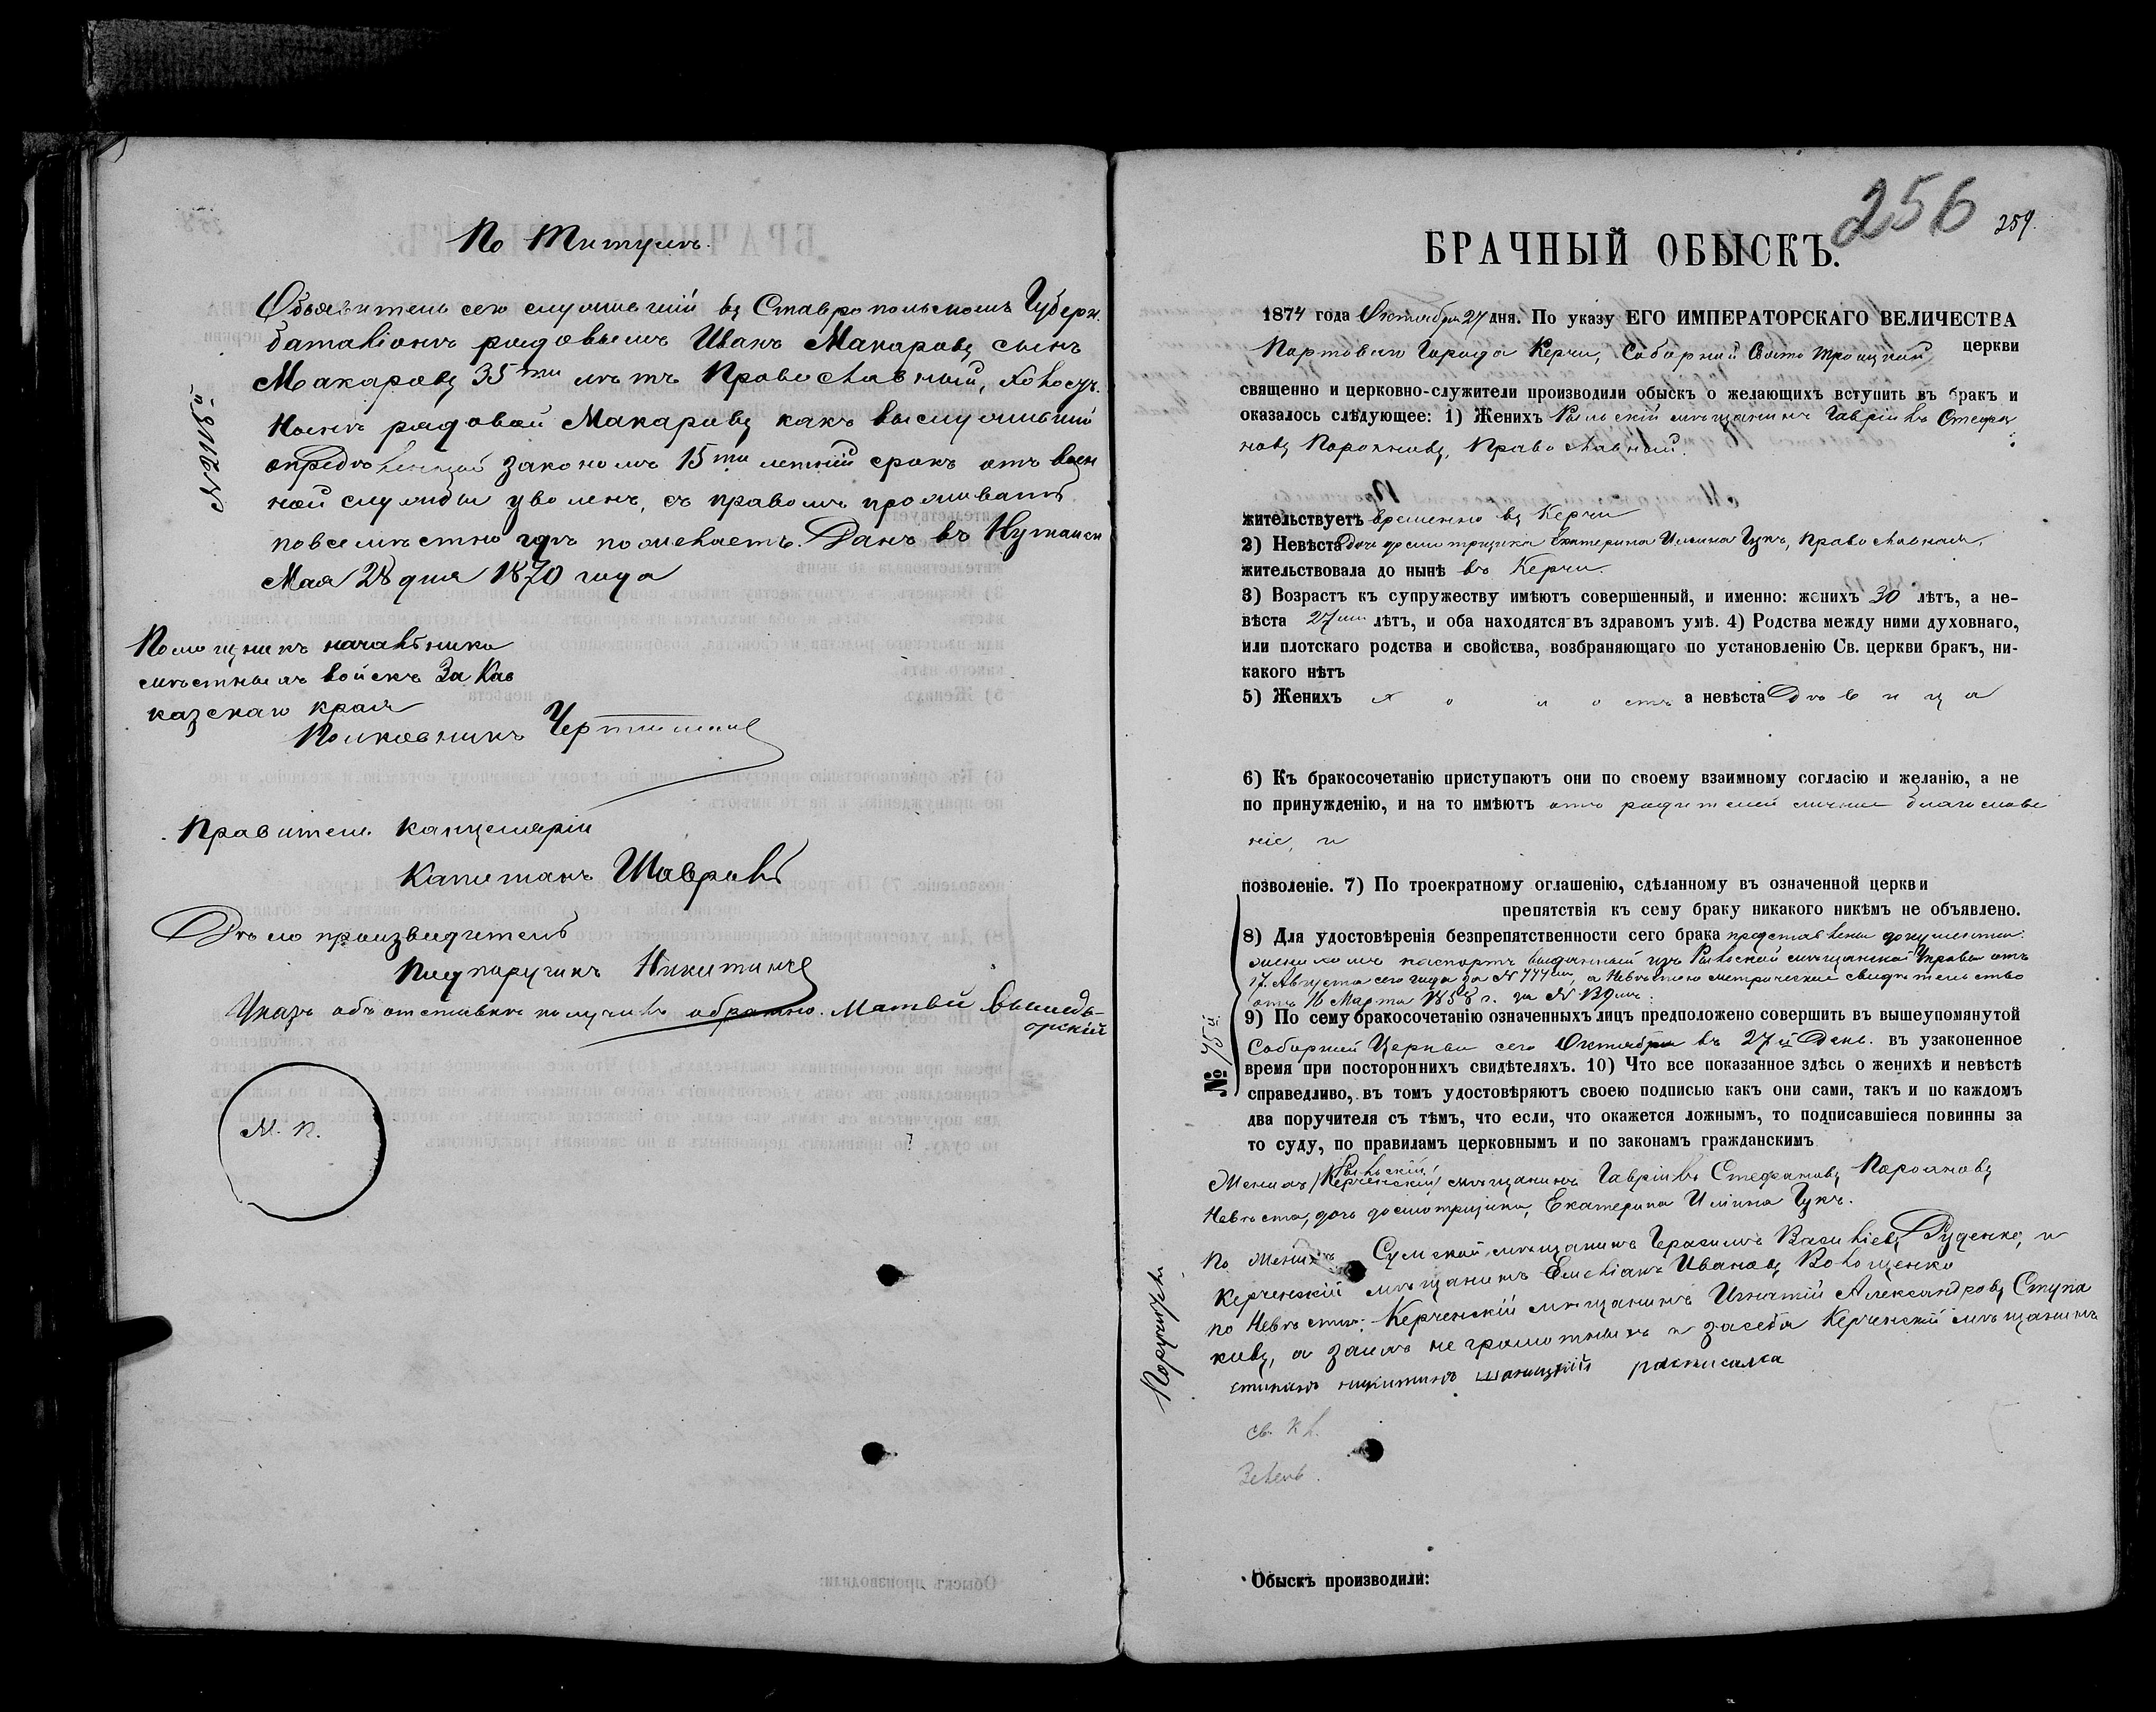 По Титулѣ.
Объявитель сего служившій въ Ставропольскомъ Губерн.
баталіонѣ рядовымъ Иванъ Макаровъ сынъ
Макаровъ 35ти лѣтъ Православный, холостъ.
Нынѣ рядовой Макаровъ какъ выслужившій
опредѣленный закономъ 15ти летній срокъ отъ воен
ной службы уволенъ, съ правомъ проживать
повсемѣстно гдѣ пожелаетъ. Данъ въ Кутаиси
Мая 28 дня 1870 года
№ 1213й
Помощникъ начальника
мѣстныхъ войскъ За Кав
казскаго края
Полковникъ
Правитель канцеляріи
Капитанъ Шавровъ
Дѣлопроизводитель
Подпоручикъ Никитинъ
Указъ объ отставкѣ получилъ обратно. Матвей
М. П.
256
259.
БРАЧНЫЙ ОБЫСКЪ.
1874 года Октября 27 дня. По указу ЕГО ИМПЕРАТОРСКАГО ВЕЛИЧЕСТВА
Портоваго Города Керчи, Соборной Свято Троицкой церкви
священно и церковно-служители производили обыскъ о желающихъ вступить въ бракъ и
оказалось слѣдующее: 1) Женихъ Рыльскій мѣщанинъ Гавріилъ Стефа
новъ Порохновъ, Православный.
жительствуетъ временно въ Керчи
2) Невѣста дочь досмотрщика Екатерина Ильина Гукъ, Православная,
жительствовала до нынѣ въ Керчи.
3) Возрастъ къ супружеству имѣютъ совершенный, и именно: женихъ 30 лѣтъ, а не-
вѣста 27ми лѣтъ, и оба находятся въ здравомъ умѣ. 4) Родства между ними духовнаго,
или плотскаго родства и свойства, возбраняющаго по установленію Св. церкви бракъ, ни-
какого нѣтъ
5) Женихъ холостъ а невѣста Дѣвица
6) Къ бракосочетанію приступаютъ они по своему взаимному согласію и желанію, а не
по принужденію, и на то имѣютъ отъ родителей личное благослове
ніе, и
позволеніе. 7) По троекратному оглашенію, сдѣланному въ означенной церкви
препятствія къ сему браку никакого никѣмъ не объявлено.
8) Для удостовѣренія безпрепятственности сего брака представлены документы:
женихомъ паспортъ выданный изъ Рыльской мѣщанской Управы отъ
17. Августа сего года за № 777, а Невѣстою метрическое свидѣтельство
отъ 16 Марта 1858 г. за № 139мъ.
9) По сему бракосочетанію означенныхъ лицъ предположено совершить въ вышеупомянутой
Соборной Церкви сего Октября въ 27й День. въ узаконенное
время при постороннихъ свидѣтеляхъ. 10) Что все показанное здѣсь о женихѣ и невѣстѣ
справедливо, въ томъ удостовѣряютъ своею подписью какъ они сами, такъ и по каждомъ
два поручителя съ тѣмъ, что если, что окажется ложнымъ, то подписавшіеся повинны за
то суду, по правиламъ церковнымъ и по законамъ гражданскимъ
№ 75й
Рыльскій
Женихъ /Керченскій/ мѣщанинъ Гавріилъ Стефановъ Порохновъ
Невѣста, дочь досмотрщика, Екатерина Ильина Гукъ.
По Женихѣ Сумской мѣщанинъ Герасимъ Васильевъ Руденко, и
Керченскій мѣщанинъ Емеліанъ Ивановъ Волощенко
по Невѣстѣ: Керченскій мѣщанинъ Игнатій Александровъ Ступа
ковъ, а заихъ не грамотныхъ и засебя Керченскій мѣщанинъ
никитинъ росписался
Поручители
Св. К.
Зелен.
Обыскъ производили: